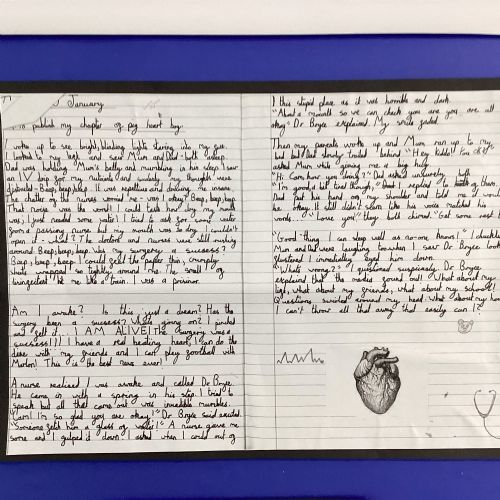 January
to publish my chapter of pig heart boy.
I woke up to see bright, blinking lights staring into my eyes.
I looked to my left and saw Mum and Dad both asleep.
Dad was holding Mum's belly and mumbling in his sleep. I saw
an IV bag for my nutrients and suddenly my thoughts were
distracted - Beep, beep, beep. It was repetitive and driving me insane.
The chatter of the nurses worried me - was I okay? Beep, beep, beep
That noise was the worst! I could taste how dry my mouth
was, I just needed some water! I tried to ask for some water
from a passing nurse but my mouth was so dry I couldn't
open it - what? The doctors and nurses were still rushing
around. Beep, beep, beep. Was my surgery a success?
Beep, beep, beep. I could feel the paper thin, crumply
sheets wrapped so tightly around me. The smell of
disinfectant hit me like a train. I was a prisoner.
Am I awake? Is this just a dream? Has the
surgery been a success? What's going on? I pinched
my self and I AM ALIVE! The surgery was a
success!!! I have a real beating heart. I can do the
dare with my friends and I can play football with
Marlon! This is the best news ever!
A nurse realised I was awake and called Dr Bryce.
He came in with a spring in his step. I tried to
speak but all that came out was inaudible mumbles.
"Cam! I'm so glad you are okay!" Dr Bryce said excited.
"Someone fetch him a glass of water!" A nurse gave me
some and I gulped it down. I asked when I could out of
this stupid place as it was horrible and dark.
"About a month so we can check you are you are all
okay" Dr Bryce explained. My smile faded.
Then my parents woke up and Mum ran up to my
bed but Dad slowly trailed behind. "Hey kiddo!
asked Mum while giving me a big hug.
"Hi Cam, how you doing?" Dad asked unsurely, both
"I'm good, a bit tired though," I replied to both of them.
Dad put his hand on my shoulder and told me I would
be okay. It still didn't seem like his voice matched his
words. "Love you!" they both chimed. "Get some rest
"Good thing I can sleep well as no-one knows!" I chuckled
Mum and Dad were laughing too when I saw Dr Bryce look
flustered I immediately eyed him down.
"What's wrong?" I questioned suspiciously. Dr Bryce
explained that the media found out! What about my
life, what about my friends, what about my school!
Questions swirled around my head. What about my
I can't throw all that away that easily can I?